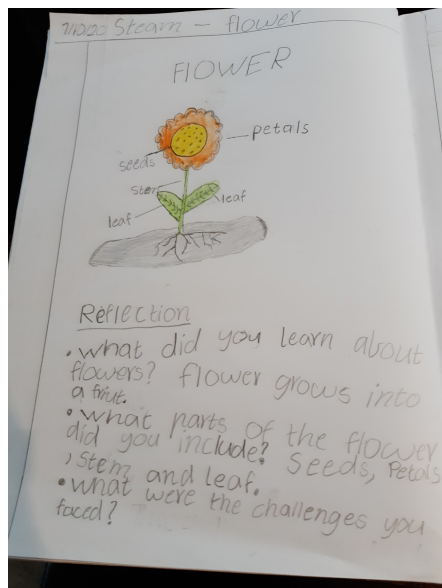 7/10/20 Steam - flower
FlOWER
petals
seeds
stem
leaf
leaf
Reflection
• what did you learn about
flowers? flower grows into
a friut.
• what parts of the flower
did you include? Seeds, Petals
, Stem and leaf.
• what were the challenges you
faced?